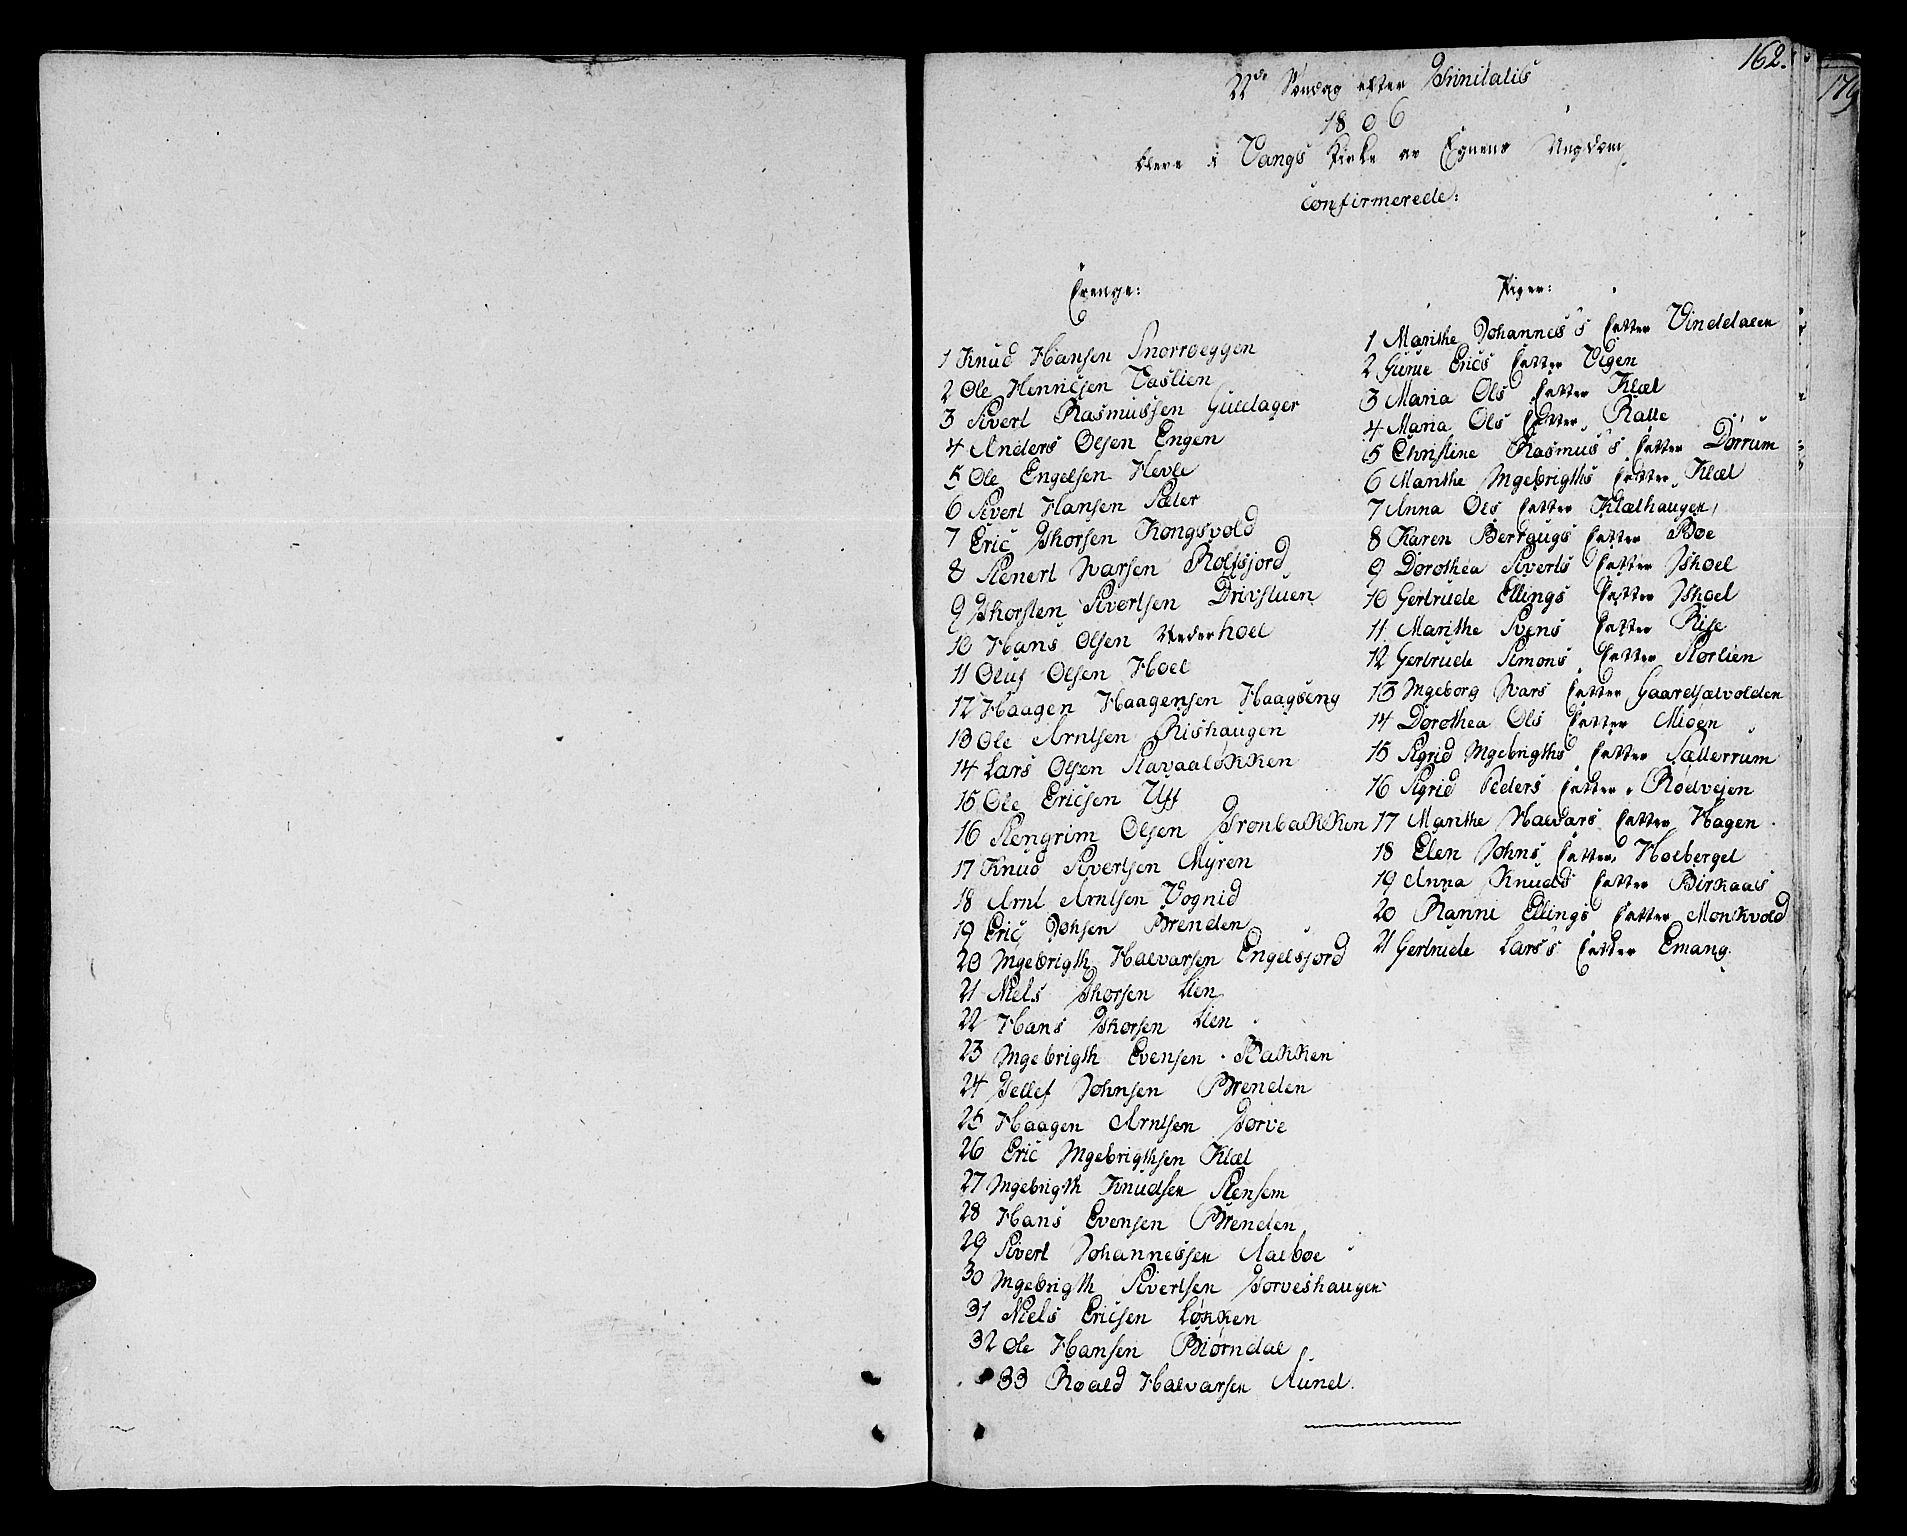 162.
179
22de Søndag efter Trinitatis
1806
bleve i Vangs Kirke av Egnens Ungdom
Confirmerede:
Drenge:
1 Knud Hansen Snorroeggen
2 Ole Henricsen Vaslien
3 Sivert Rasmussen Guldager
4 Anders Olsen Engen
5 Ole Engelsen Hevle
6 Sivert Hansen Sæter
7 Eric Thorsen Kongsvold
8 Stenert Ivarsen Rolfsjord
9 Thorsten Sivertsen Drivstuen
10 Hans Olsen Nederhoel
11 Oluf Olsen Hoel
12 Haagen Haagensen Haagseng
13 Ole Arntsen Rishaugen
14 Lars Olsen Stavaaløkken
15 Ole Ericsen Uff
16 Stengrim Olsen Trønbakken
17 Knud Sivertsen Myren
18 Arnt Arntsen Vognid
19 Eric Johsen Brenden
20 Ingebrigth Halvarsen Engelsjord
21 Niels Thorsen Lien
22 Hans Thorsen Lien
23 Ingebrigth Evensen Bakken
24 Tellef Johnsen Brenden
25 Haagen Arntsen Torve
26 Eric Ingebrigthsen Klæt
27 Ingebrigth Knudsen Stensem
28 Hans Evensen Brenden
29 Sivert Johannessen Aalboe
30 Ingebrigth Sivertsen Torveshaugen
31 Niels Ericsen Løkken
32 Ole Hansen Biørndal
33 Roald Halvarsen Aune
Piger:
1 Marithe Johannes's Datter Vinddalen
2 Gurue Erics Datter Vigen
3 Maria Ols Datter Klæt
4 Maria Ols Datter Ralle
5 Christine Rasmus's Datter Dørrum
6 Marithe Ingebrigths Datter Klæt
7 Anna Ols Datter Klæthaugen
8 Karen Berraugs Datter Boe
9 Dorothea Siverts Datter Ishoel
10 Gertrude Ellings Datter Ishoel
11 Marithe Svens Datter Rise
12 Gertrude Simons Datter Storlien
13 Ingeborg Ivars Datter Gaardsætvolden
14 Dorothea Ols Datter Mioen
15 Sigrid Ingebrigths Datter Sætterrum
16 Sigrid Peders Datter Rødvejen
17 Marithe Halvars Datter Hagen
18 Elen Johns Datter Holberget
19 Anna Knuds Datter Birkaas
20 Ranni Ellings Datter Monkvold
21 Gertrude Lars's Datter Emang